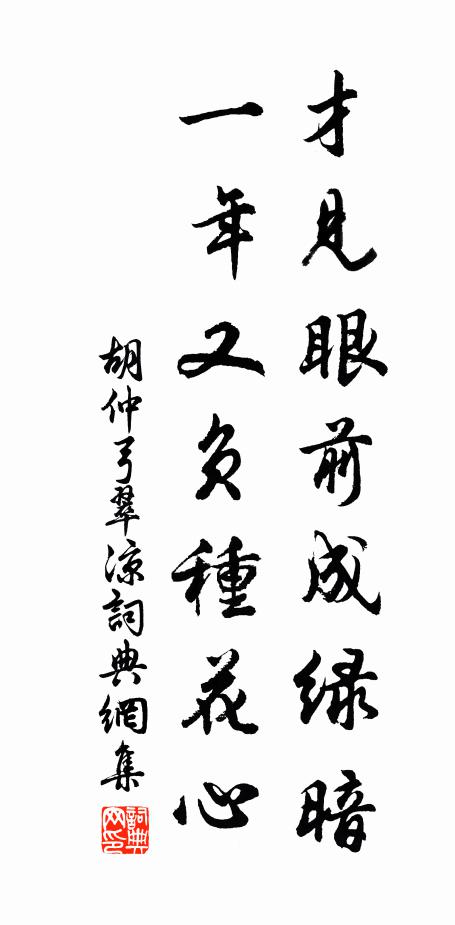 才見眼前成緑暗
一年又負種花心
胡仲弓翠涼詞典網集
詞典网印